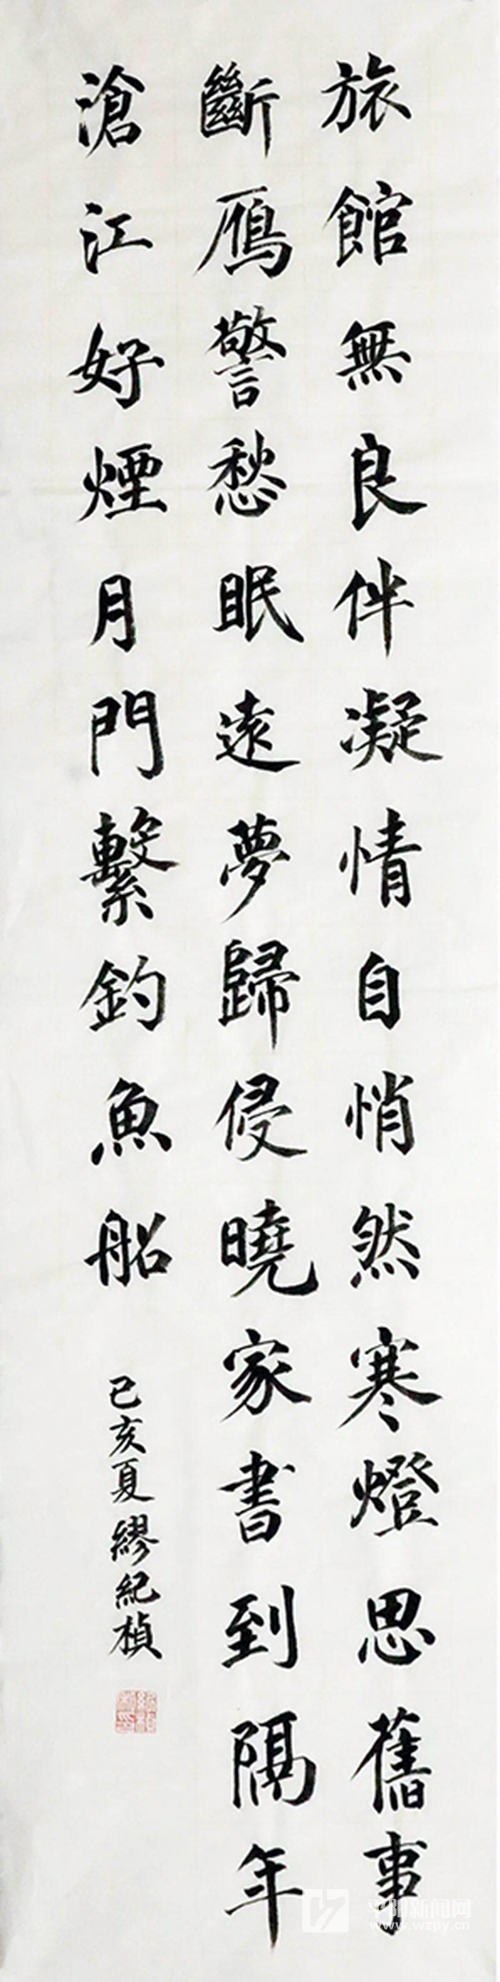 旅館無良伴凝情自悄然寒燈思舊事
斷鴈警愁眠遠夢歸侵曉家書到隔年
滄江好煙月門繫釣魚船
己亥夏繆紀楨
平阳新闻网
www.wzpy.cn